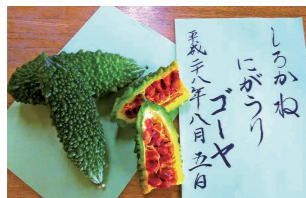 しろかね
にがうり
ゴーヤ
平成二八年八月五日